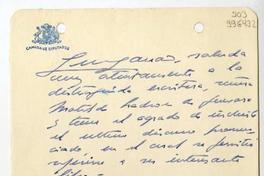 503
996432
CAMARA DE DIPUTADOS
saluda
muy atentamente a la
distinguida escritora, señora
Matilde Ladron de Guevara
y tiene el agrado de incluirle
el ultimo discurso pronun-
ciado en el cual se permitió
a su interesante